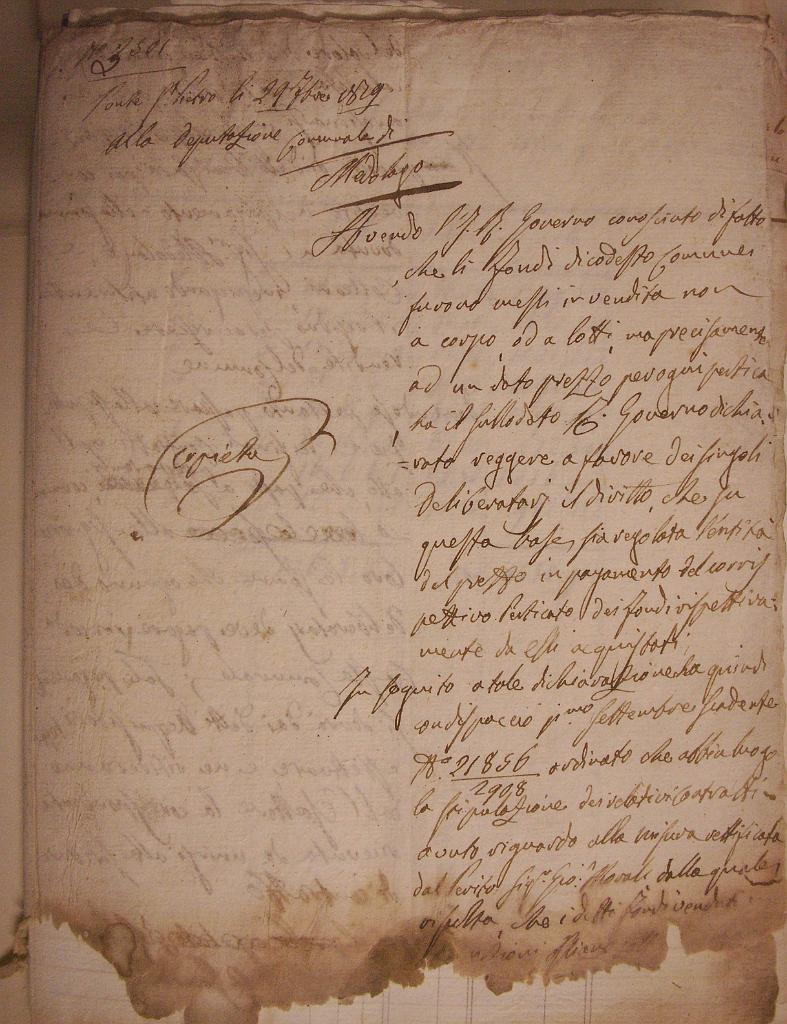 N.° 3501
Ponte S. Pietro li 29 7bre 1829
Alla Deputazione Comunale di
Medolago
Avendo l'I. R. Governo conosciuto di fatto
che li fondi di codesto Comune
furono messi in vendita non
a corpo, od a lotti, ma precisamente
ad un dato prezzo per ogni pertica
ha il sullodato R. Governo dichia
=rato reggere a favore dei singoli
Deliberatarj il diritto, che su
questa base, sia regolata l'entità
del prezzo in pagamento del corris
pettivo Perticato dei fondi rispettiva
mente da essi acquistati.
In seguito a tale dichiarazione ha quindi
con dispaccio p.mo Settembre scadente
N.° 21856/2908 ordinato che abbia luogo
la stipulazione dei relativi contratti
avuto riguardo alla misura rettificata
dal Perito Sig.r Gio. Morali dalla quale
risulta, che i detti fondi venduti
Copietta